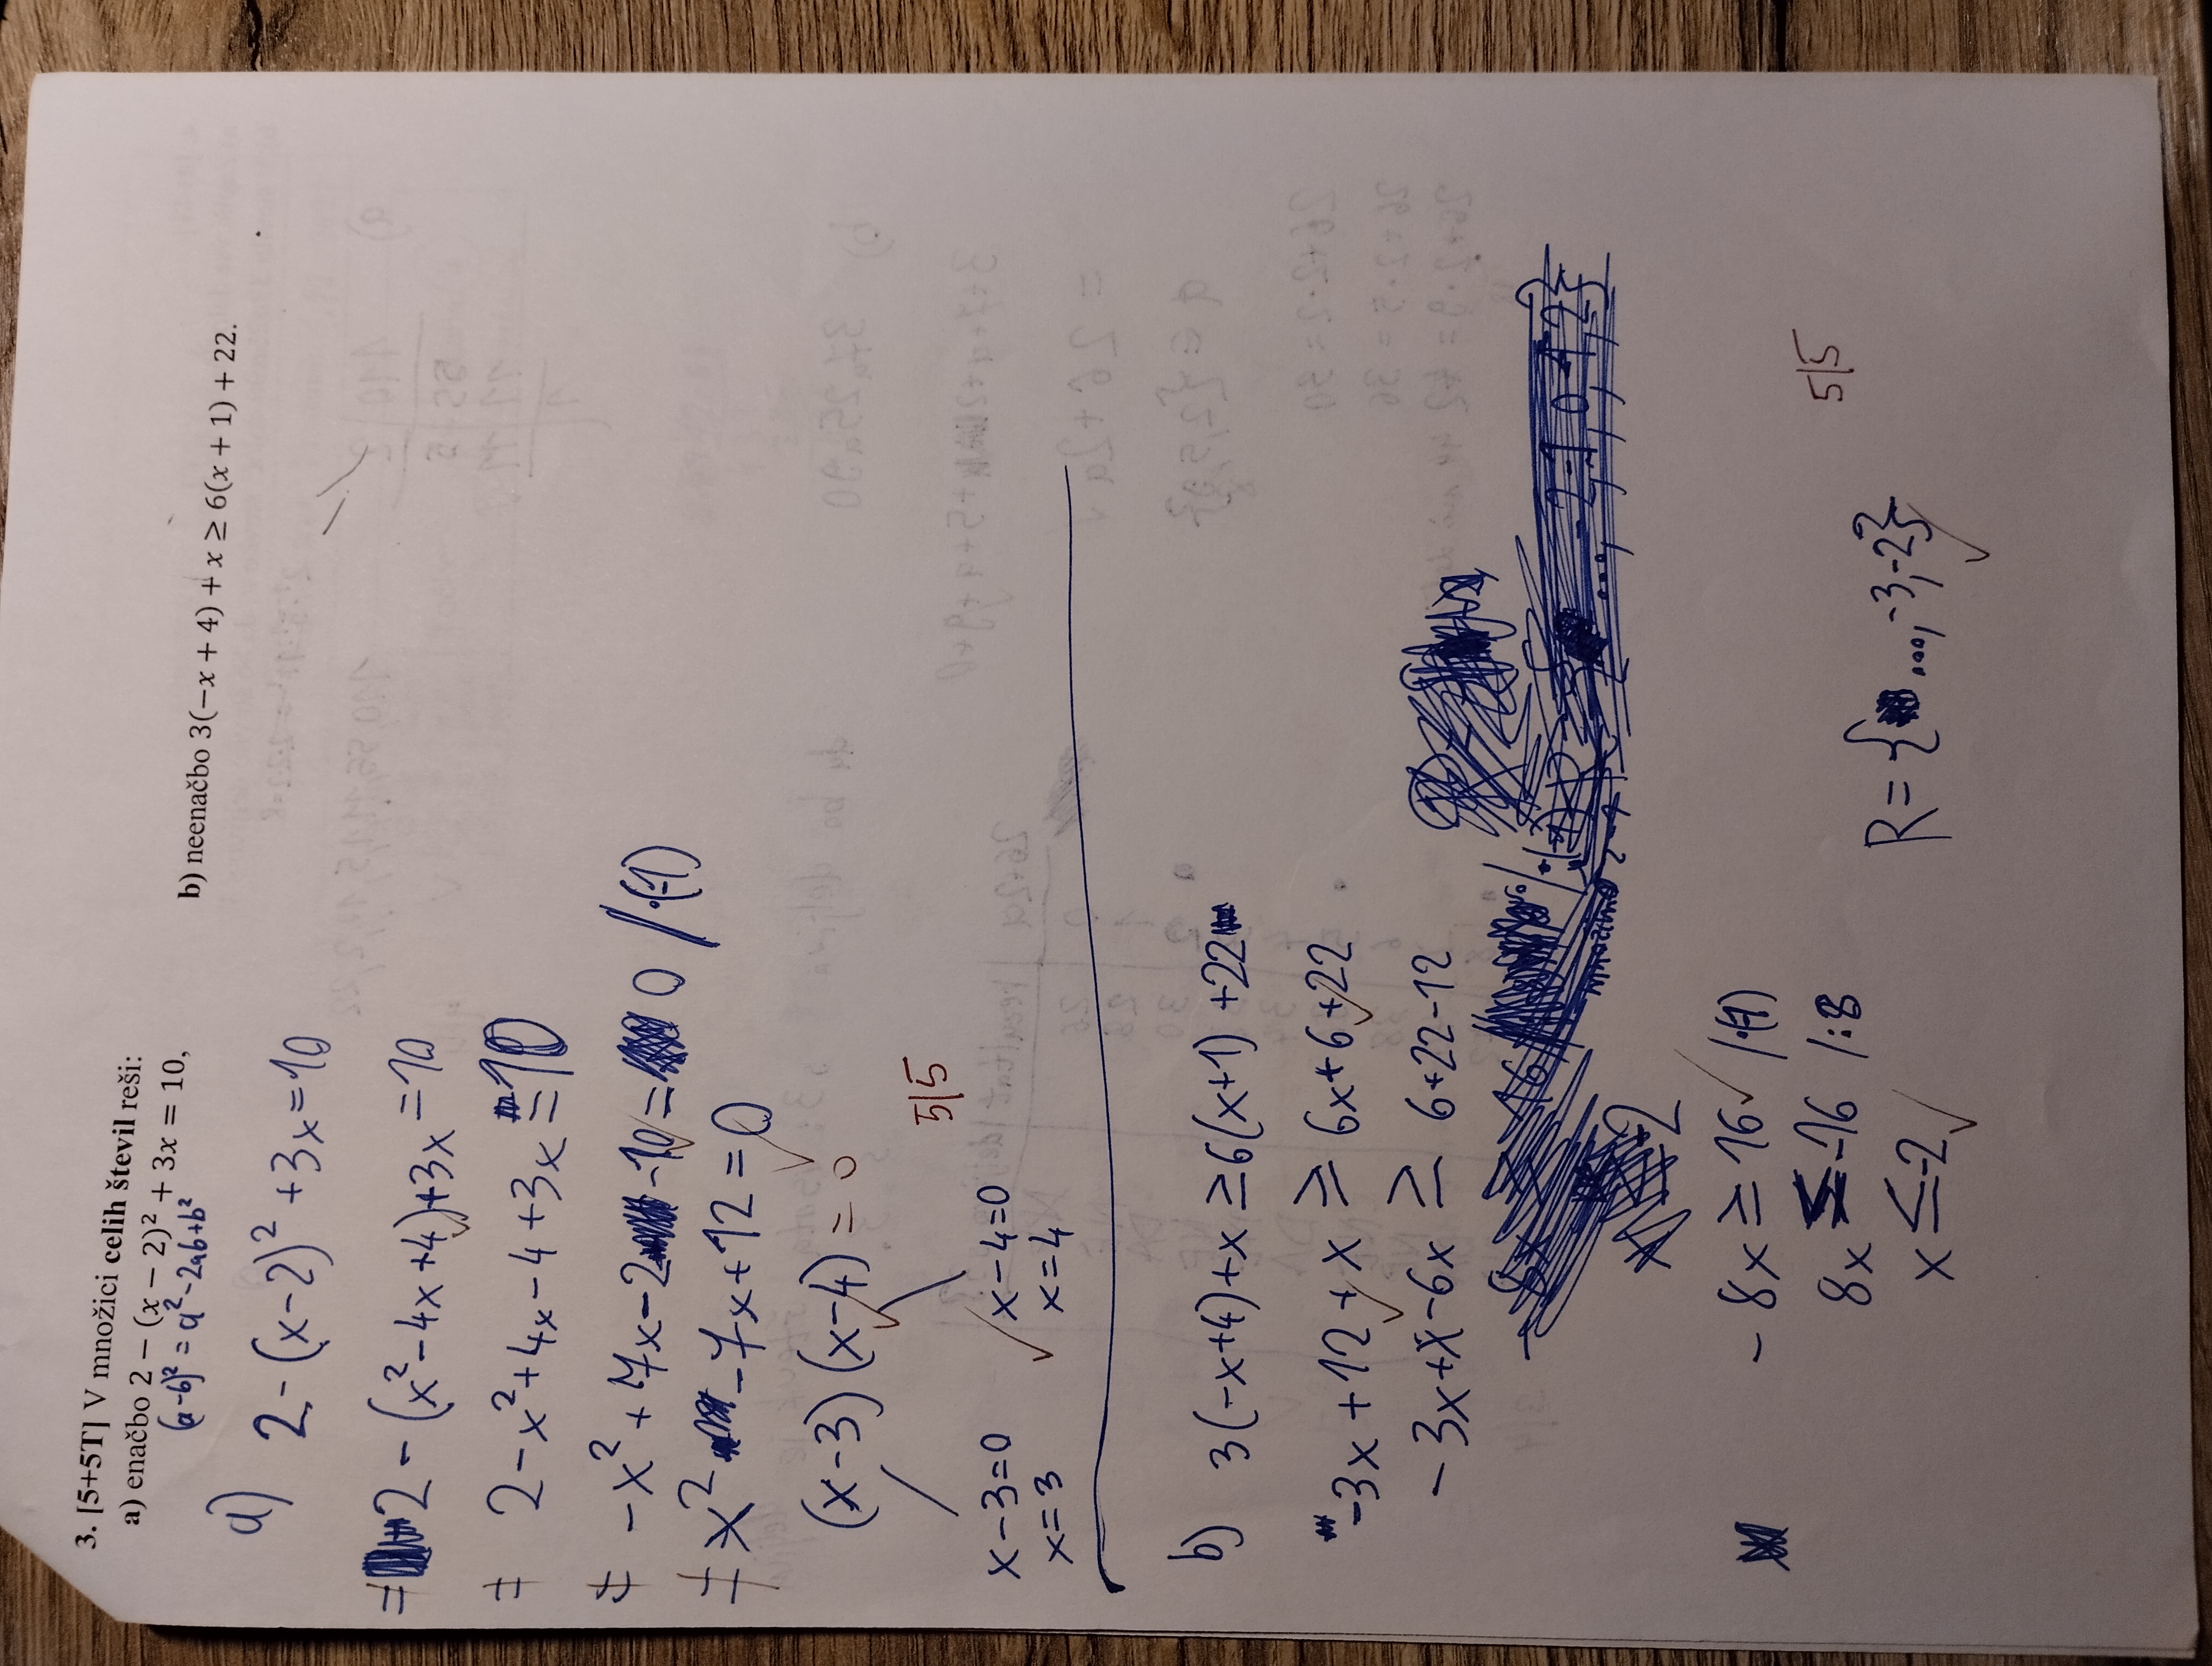 3. [5+5T] V množici celih števil reši:
a) enačbo 2 − (x − 2)² + 3x = 10,
b) neenačbo 3(−x + 4) + x ≥ 6(x + 1) + 22.
(a-b)² = a²-2ab+b²
a)
2-(x-2)²+3x=10
= 2-(x²-4x+4)+3x=10
= 2-x²+4x-4+3x=10
= -x²+7x-2-10=0 /·(-1)
= x²-7x+12=0
(x-3)(x-4)=0
5|5
x-3=0 x-4=0
x=3 x=4
b) 3(-x+4)+x≥6(x+1)+22
-3x+12+x ≥ 6x+6+22
-3x+x-6x ≥ 6+22-12
-8x≥16 /·(-1)
8x≤-16 /:8
x≤-2
R={...,-3,-2}
5|5